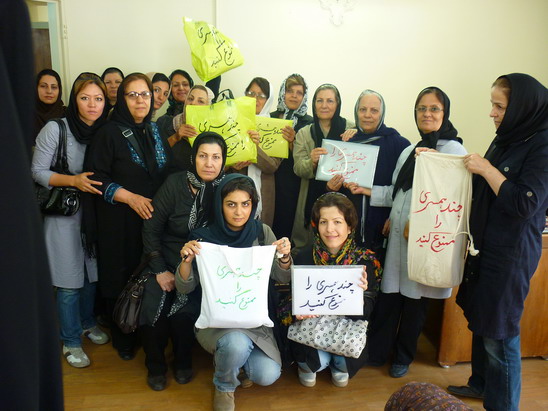 چند همسری
را
چند همسری
را
چند همسری را
ممنوع کنید
چند همسری
را
ممنوع کنید
چند همسری
را
ممنوع کنید
چند همسری را
ممنوع کنید